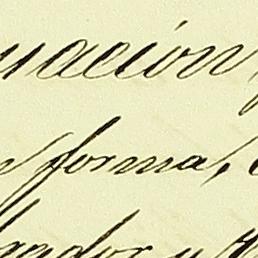 uación,
forma,
rador y